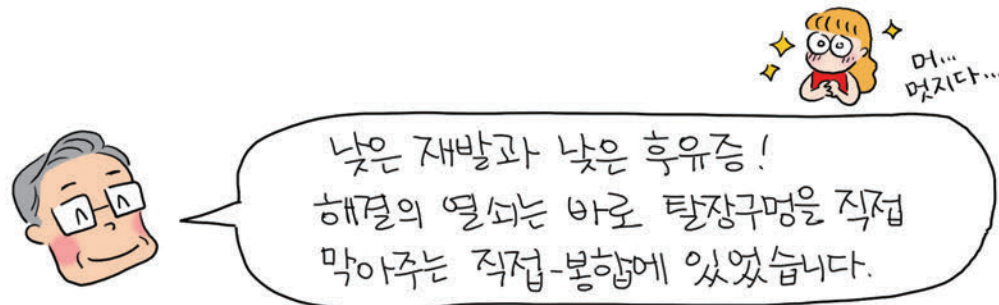 머...
멋지다...
낮은 재발과 낮은 후유증!
해결의 열쇠는 바로 탈장구멍을 직접
막아주는 직접-봉합에 있었습니다.